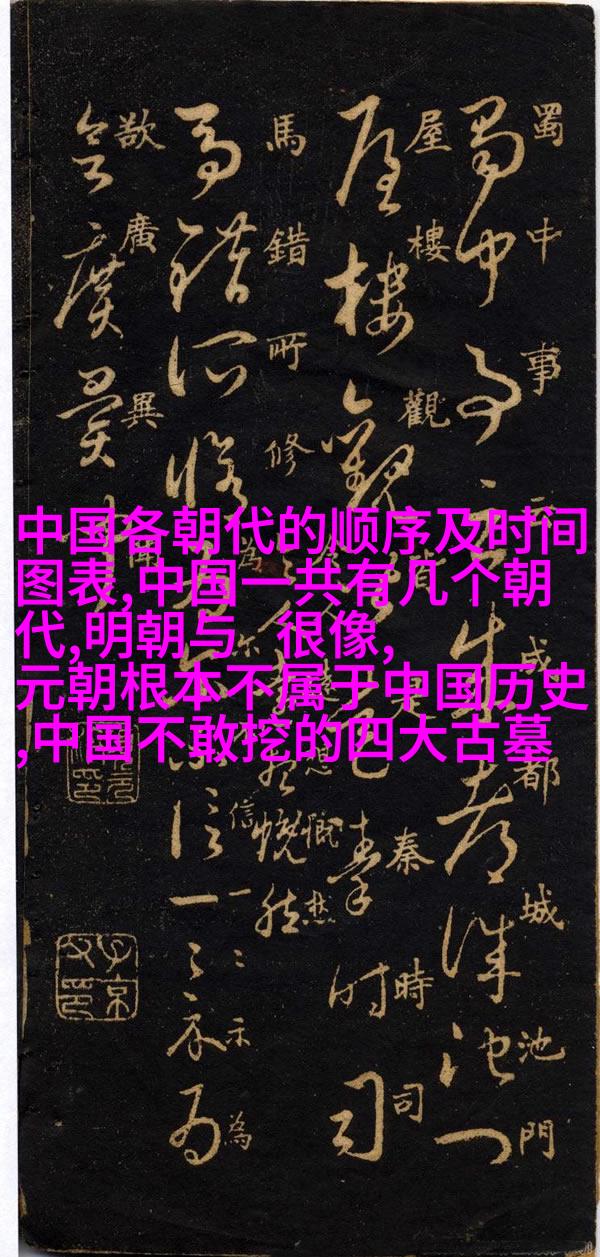 蜀中事云成都城池門
屋樓觀皆見秦時司
馬錯所修令人遠想慨然
為爾不信一一示為
欲廣異聞
中国各朝代的顺序及时间
图表,中国一共有几个朝
代,明朝与 很像,
元朝根本不属于中国历史
,中国不敢挖的四大古墓